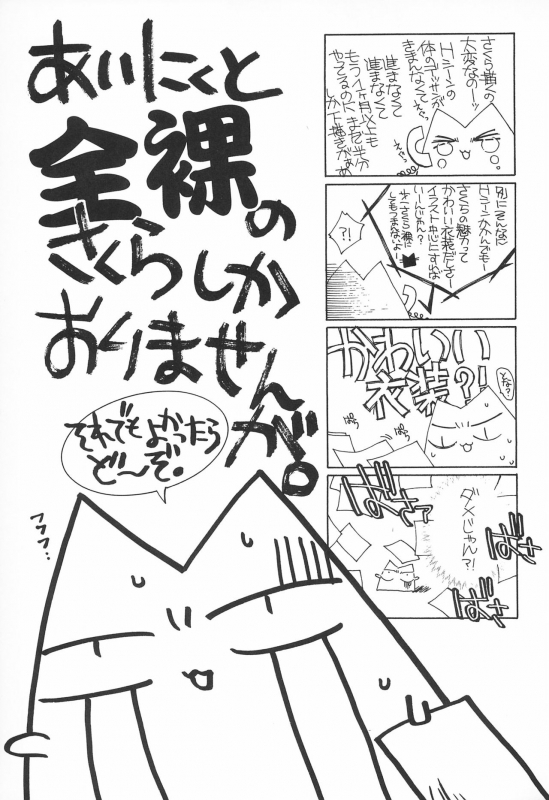 あいにくと
全裸の
さくらしか
おりません
が。
それでもよかったら
ど〜ぞ。
フフフ…
さくら描くの
大変なの〜!!
Hシーンの
体のデッサンが
きまんなくて
進まなくて
進まなくて
もう1ヶ月以上も
やってるのにまだ半分
しか下描きがぁぁ
別にそんなに
Hシーンかかんでもー
さくらの魅力って
かわいい衣装だしさー
イラスト中心にすれば
いーんじゃん?
?!
かわいい
衣装?!
そお?
ぱら
ぱら
ダメじゃん?!